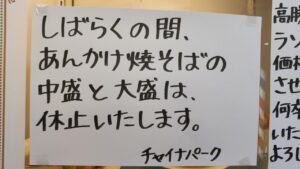 しばらくの間、
あんかけ焼そばの
中盛と大盛は、
休止いたします。
チャイナパーク
高騰
ラン
価格
させ
何卒
いた
よろし